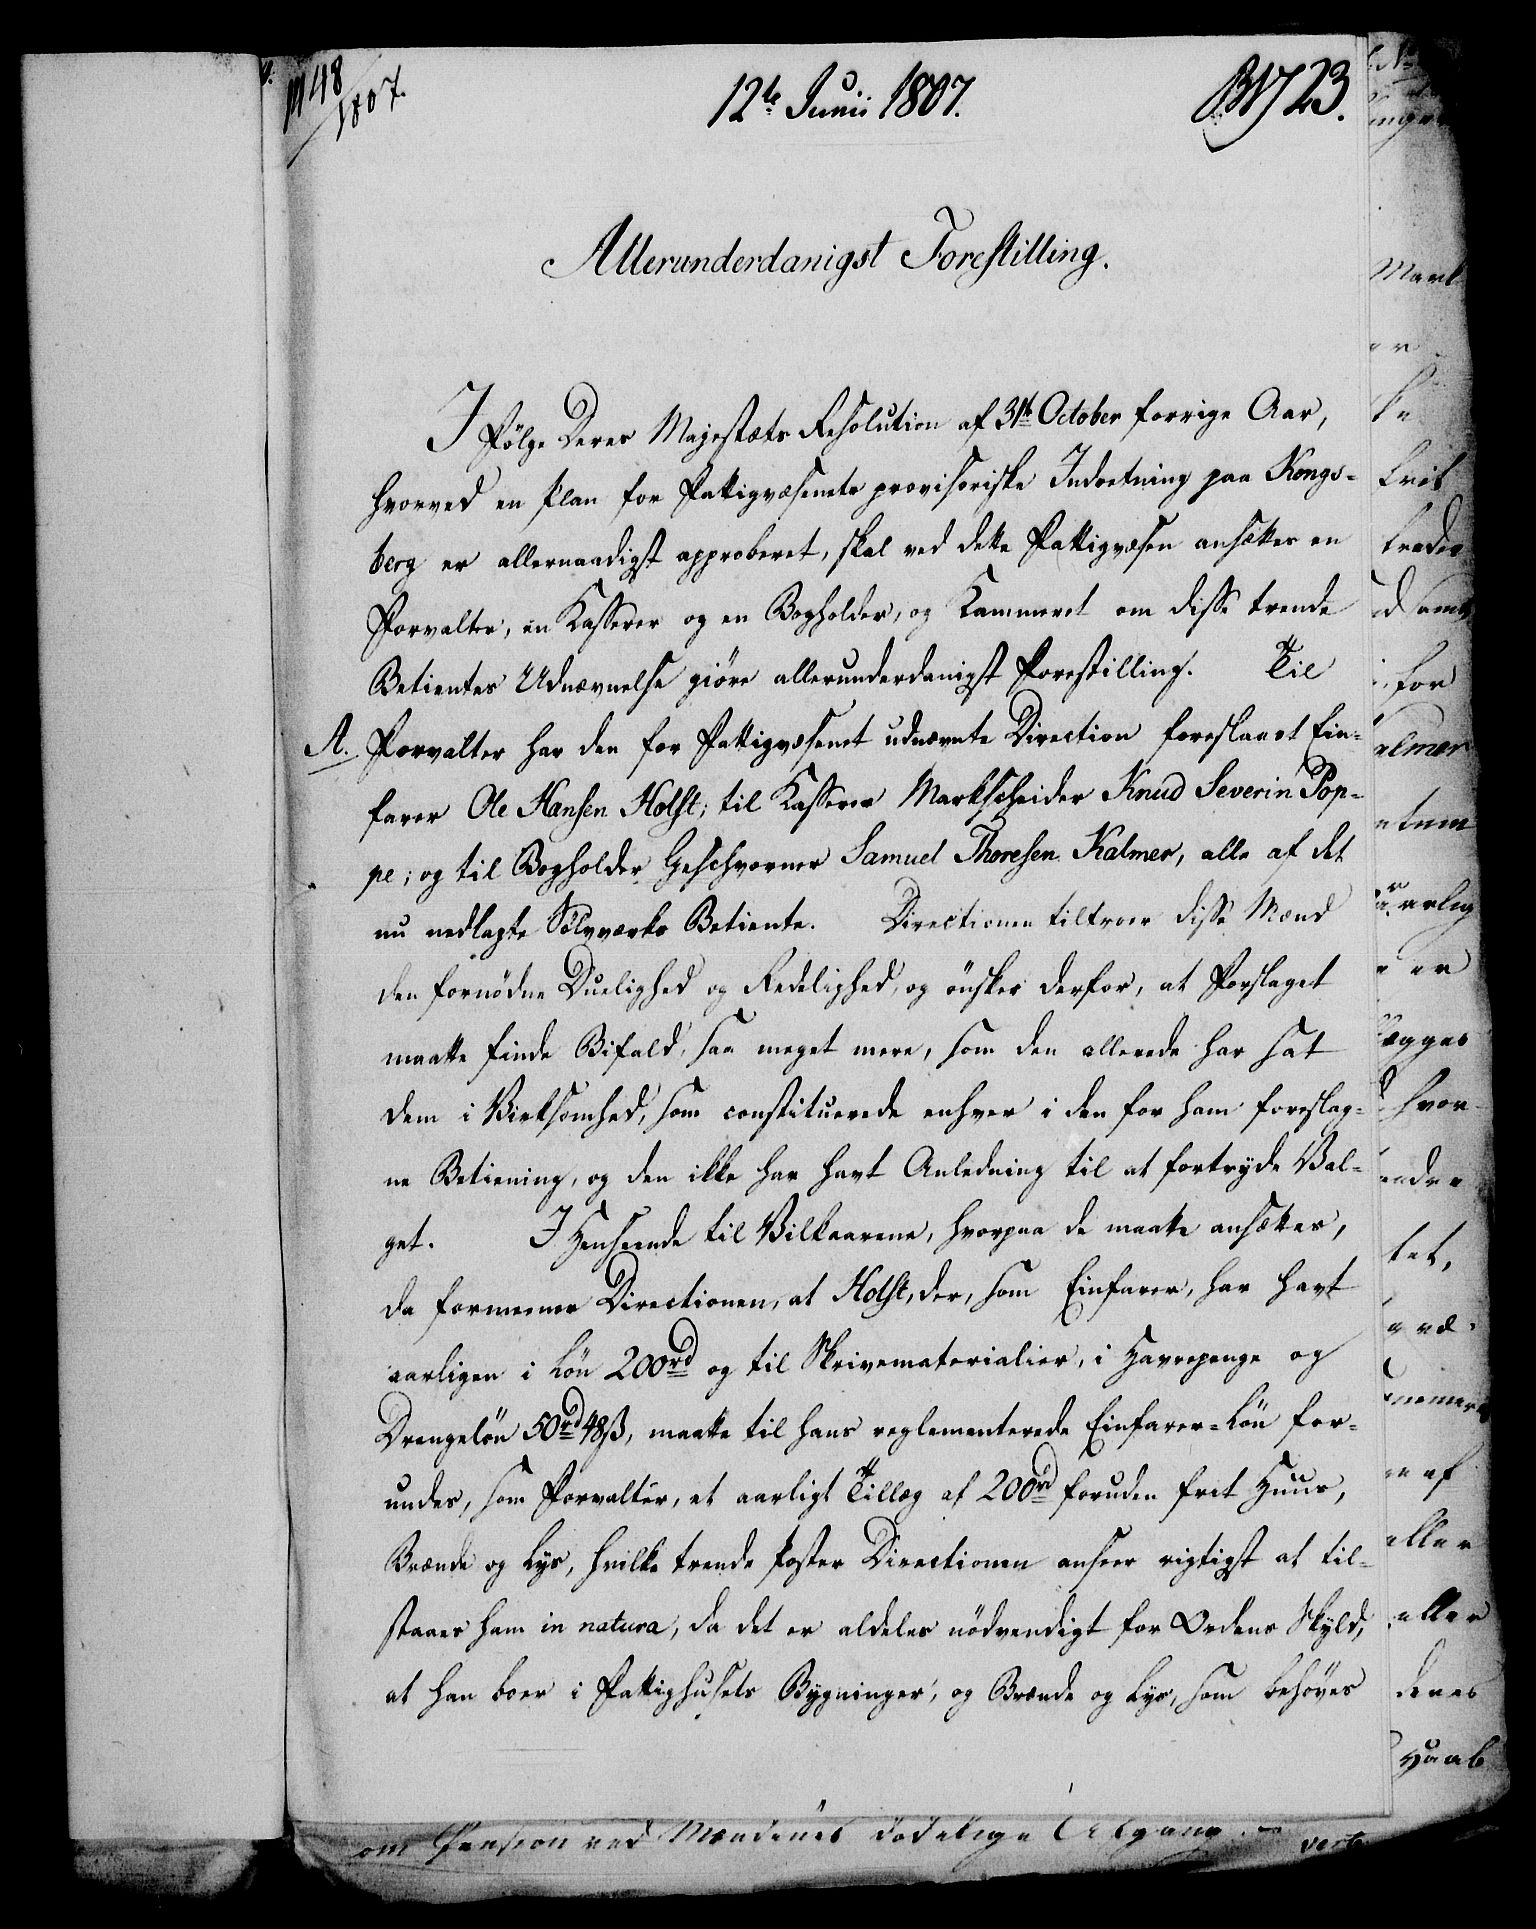 M 48/1807.
12te Junii 1807.
23.
Allerunderdanigst Forestilling.
I Følge Deres Majestæts Resolution af 31te October forrige Aar,
hvorved en Plan for Fattigvæsenets provisoriske Indretning paa Kongs-
berg er allernaadigst approberet, skal ved dette Fattigvæsen ansættes en
Forvalter, en Kasserer og en Bogholder, og Kammeret om disse trende
Betientes Udnævnelse giøre allerunderdanigst Forestilling. Til
A. Forvalter har den for Fattigvæsenet udnævnte Direction foreslaaet Ein-
farer Ole Hansen Holst; til Kasserer Markscheider Knud Severin Pop-
pe; og til Bogholder Geschworner Samuel Thoresen Kalmer, alle af det
nu nedlagte Sølvværks Betiente. Directionen tiltroer disse Mænd
den fornødne Duelighed og Redelighed, og ønsker derfor, at Forslaget
maatte finde Bifald, saa meget mere, som den allerede har sat
dem i Virksomhed, som constituerede enhver i den for ham foreslag-
ne Betiening, og den ikke har havt Anledning til at fortryde Val-
get. I Henseende til Vilkaarene, hvorpaa de maatte ansættes,
da formener Directionen, at Holst, der, som Einfarer, har havt
aarligen i Løn 200rd og til Skrivematerialier, i Havrepenge og
Drengeløn 50rd 48ß, maatte til hans reglementerede Einfarer-Løn for-
undes, som Forvalter, et aarligt Tillæg af 200rd foruden frit Huus,
Brænde og Lys, hvilke trende Poster Directionen anseer rigtigst at til-
staaes ham in natura, da det er aldeles nødvendigt for Ordens Skyld,
at han boer i Fattighusets Bygninger, og Brænde og Lys, som behøves
om Pension ved Mændenes dødelige Afgang.
verte